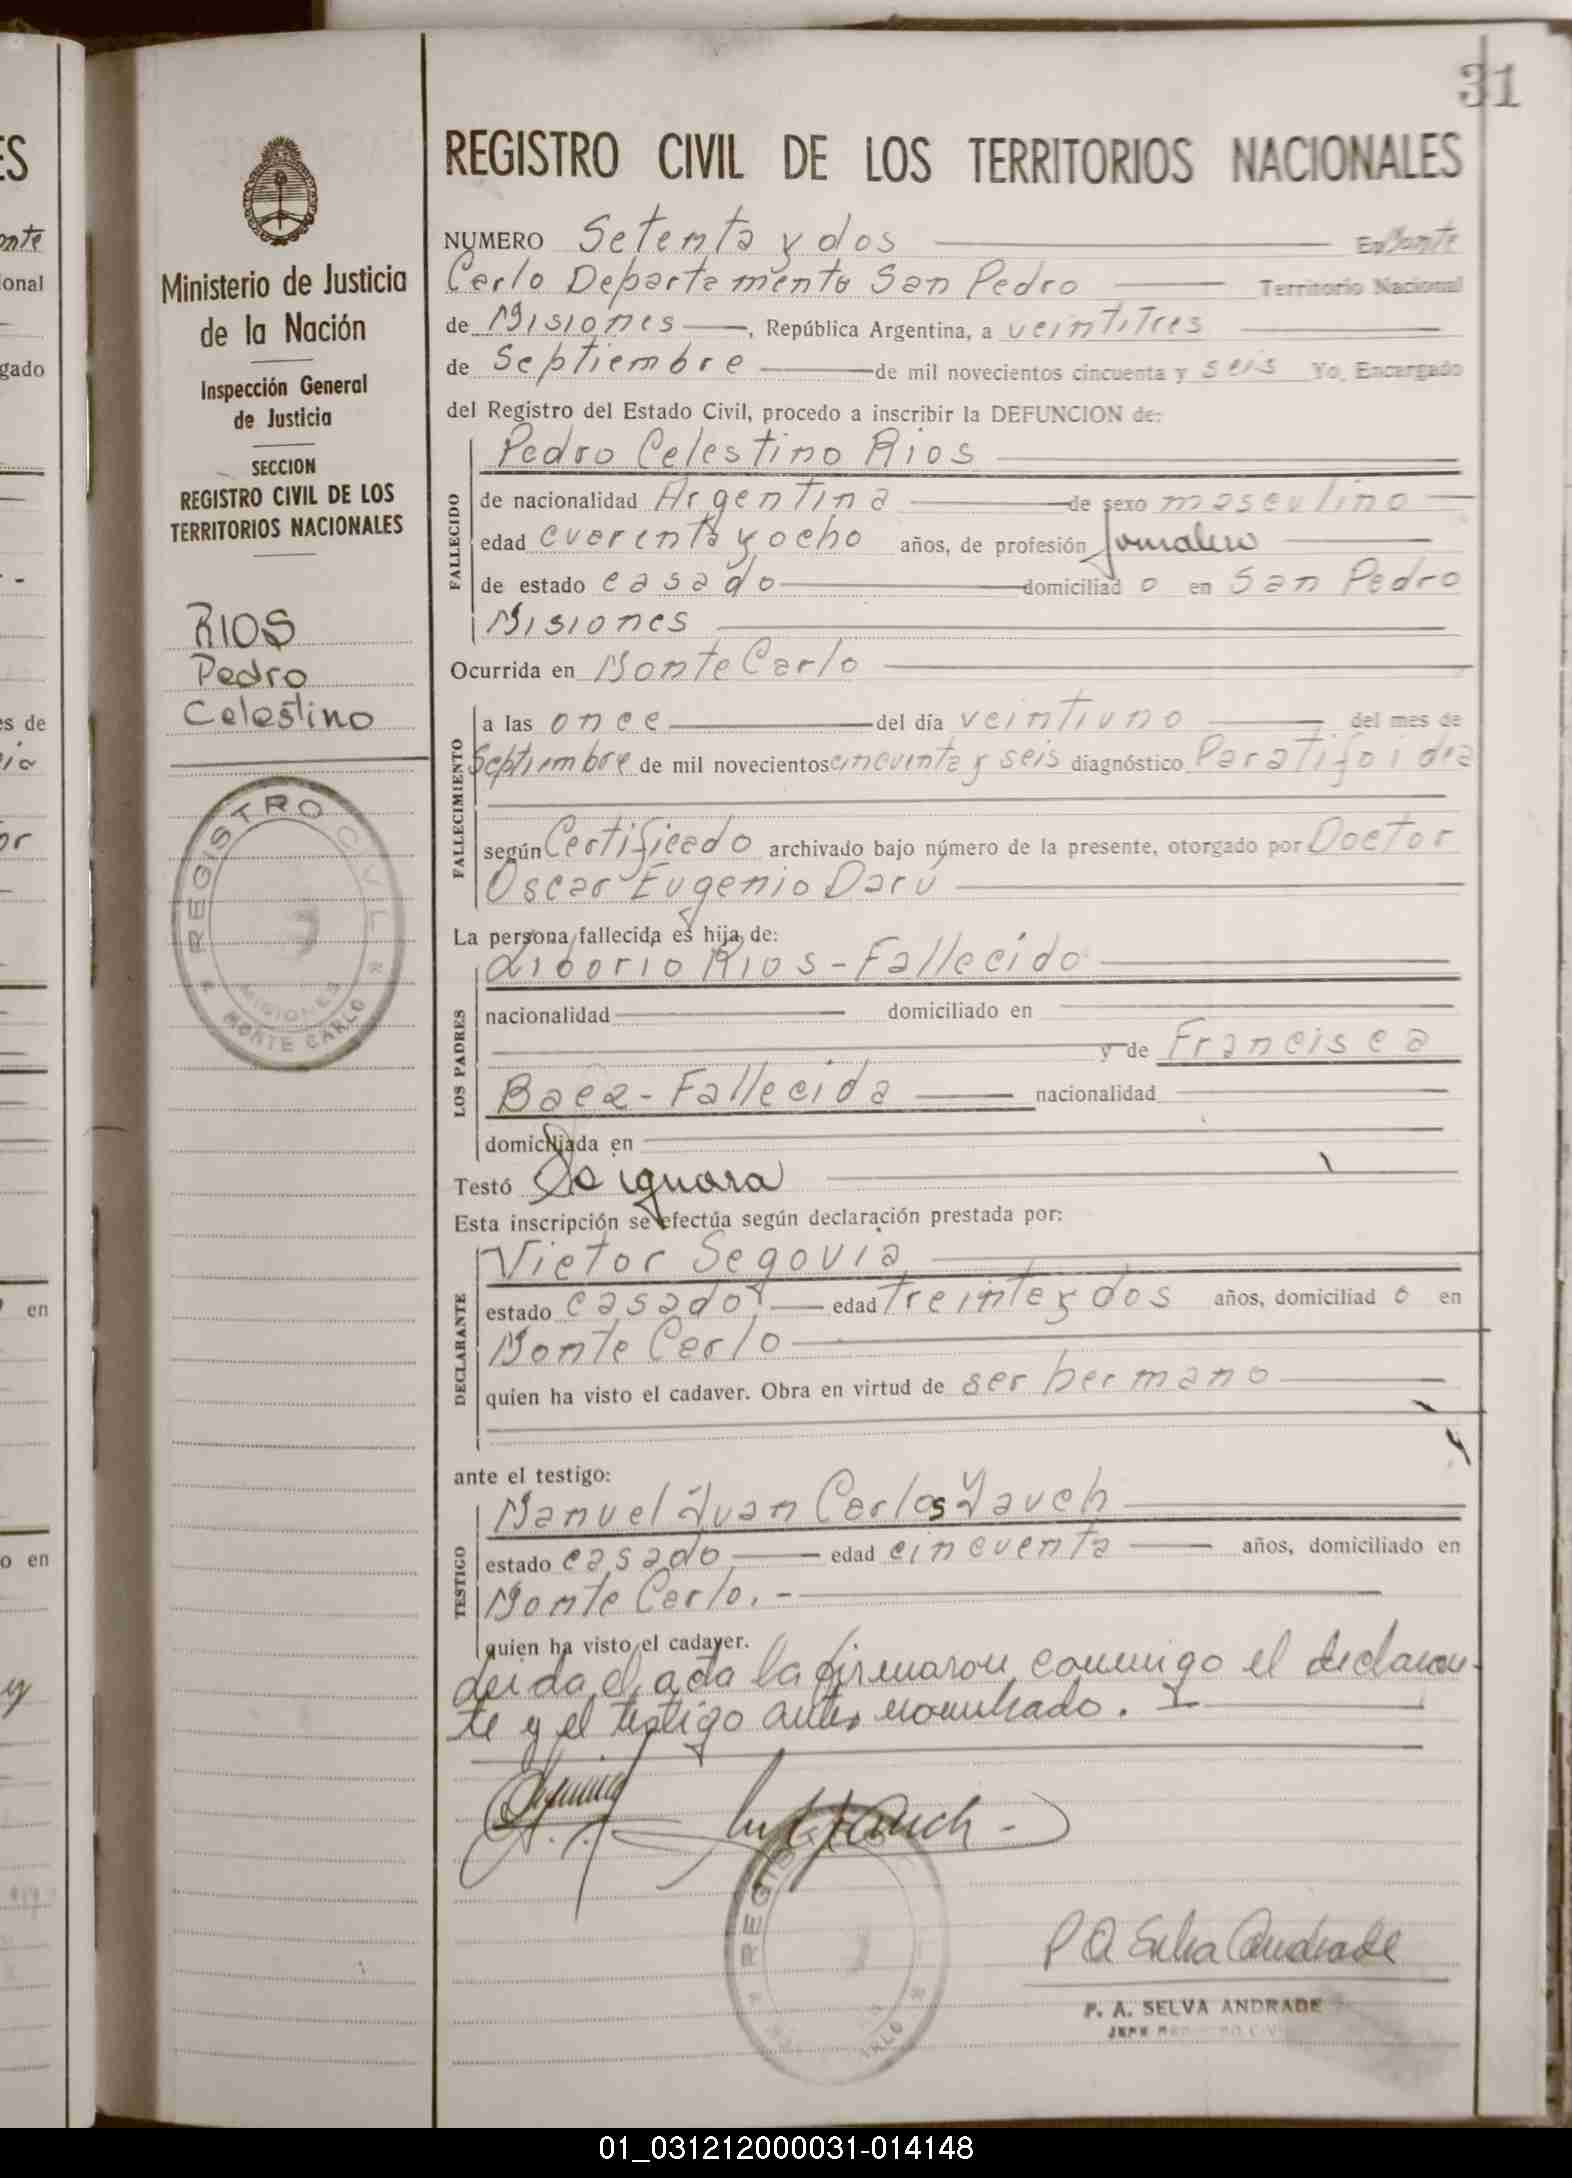 31
REGISTRO CIVIL DE LOS TERRITORIOS NACIONALES
NUMERO Setenta y dos En Monte
Carlo Departamento San Pedro Territorio Nacional
de Misiones, República Argentina, a veintitres
de Septiembre de mil novecientos cincuenta y seis Yo, Encargado
del Registro del Estado Civil, procedo a inscribir la DEFUNCION de:
FALLECIDO
Pedro Celestino Rios
de nacionalidad Argentina de sexo masculino
edad cuarenta y ocho años, de profesión Jornalero
de estado casado domiciliado en San Pedro
Misiones
Ocurrida en Monte Carlo
FALLECIMIENTO
a las once del día veintiuno del mes de
Septiembre de mil novecientos cincuenta y seis diagnóstico Paratifoidea
según Certificado archivado bajo número de la presente, otorgado por Doctor
Oscar Eugenio Darú
La persona fallecida es hija de:
LOS PADRES
Liborio Rios - Fallecido
nacionalidad domiciliado en
y de Francisca
Baez - Fallecida nacionalidad
domiciliada en
Testó Se ignora
Esta inscripción se efectúa según declaración prestada por:
DECLARANTE
Victor Segovia
estado casado edad treinta y dos años, domiciliado en
Monte Carlo
quien ha visto el cadaver. Obra en virtud de ser hermano
ante el testigo:
TESTIGO
Manuel Juan Carlos Yauch
estado casado edad cincuenta años, domiciliado en
Monte Carlo. -
quien ha visto el cadaver.
Leida el acta la firmaron conmigo el declaran-
te y el testigo antes nombrado.
Yauch
P A Selva Andrade
P. A. SELVA ANDRADE
Ministerio de Justicia
de la Nación
Inspección General
de Justicia
SECCION
REGISTRO CIVIL DE LOS
TERRITORIOS NACIONALES
RIOS
Pedro
Celestino
REGISTRO CIVIL
MISIONES
MONTE CARLO
01_031212000031-014148